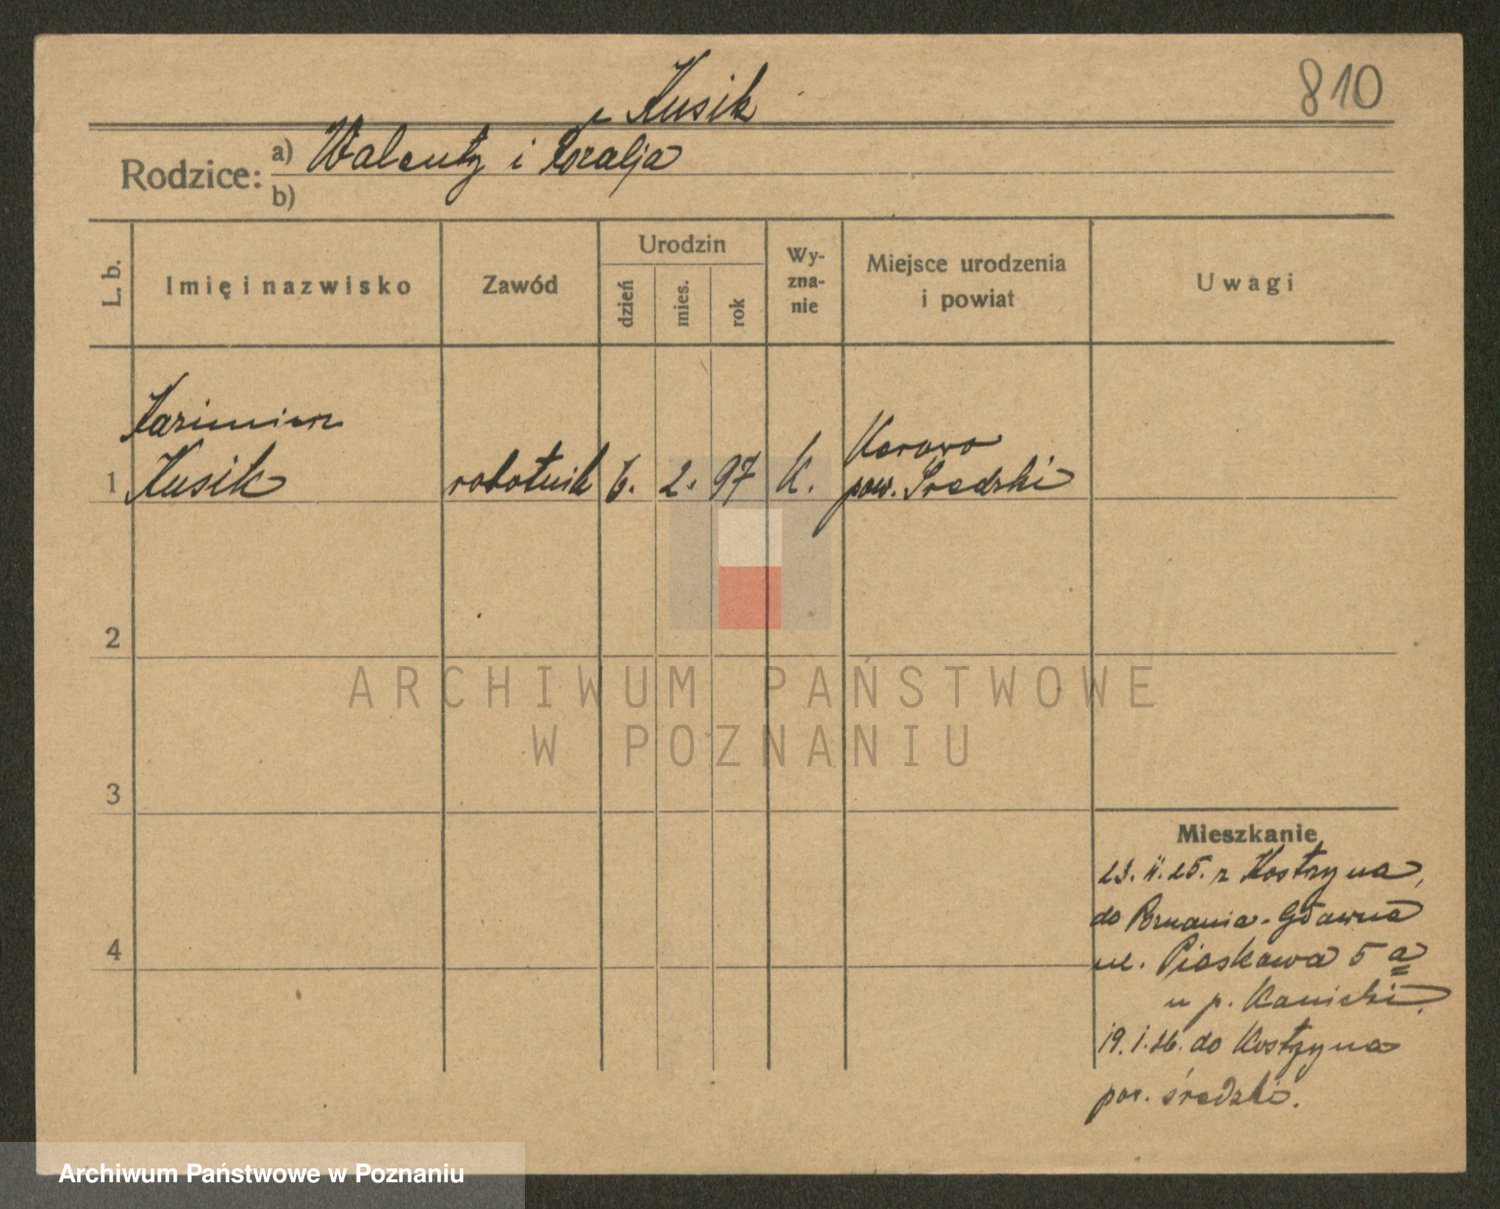 810
z Kusik
Rodzice: a) Walenty i Rozalja
b)
L. b. Imię i nazwisko Zawód Urodzin dzień mies. rok Wy-zna-nie Miejsce urodzenia i powiat Uwagi
Kazimierz
1 Kusik robotnik 6. 2. 97 K. pow. Średzki
2
3
4
Mieszkanie
23. II. 25. z Kostrzyna,
do Poznania-Główna
ul. Piaskowa 5 a
u p. Kanicki.
19. I. 26. do Kostrzyna
pow. średzki.
ARCHIWUM PAŃSTWOWE
W POZNANIU
Archiwum Państwowe w Poznaniu